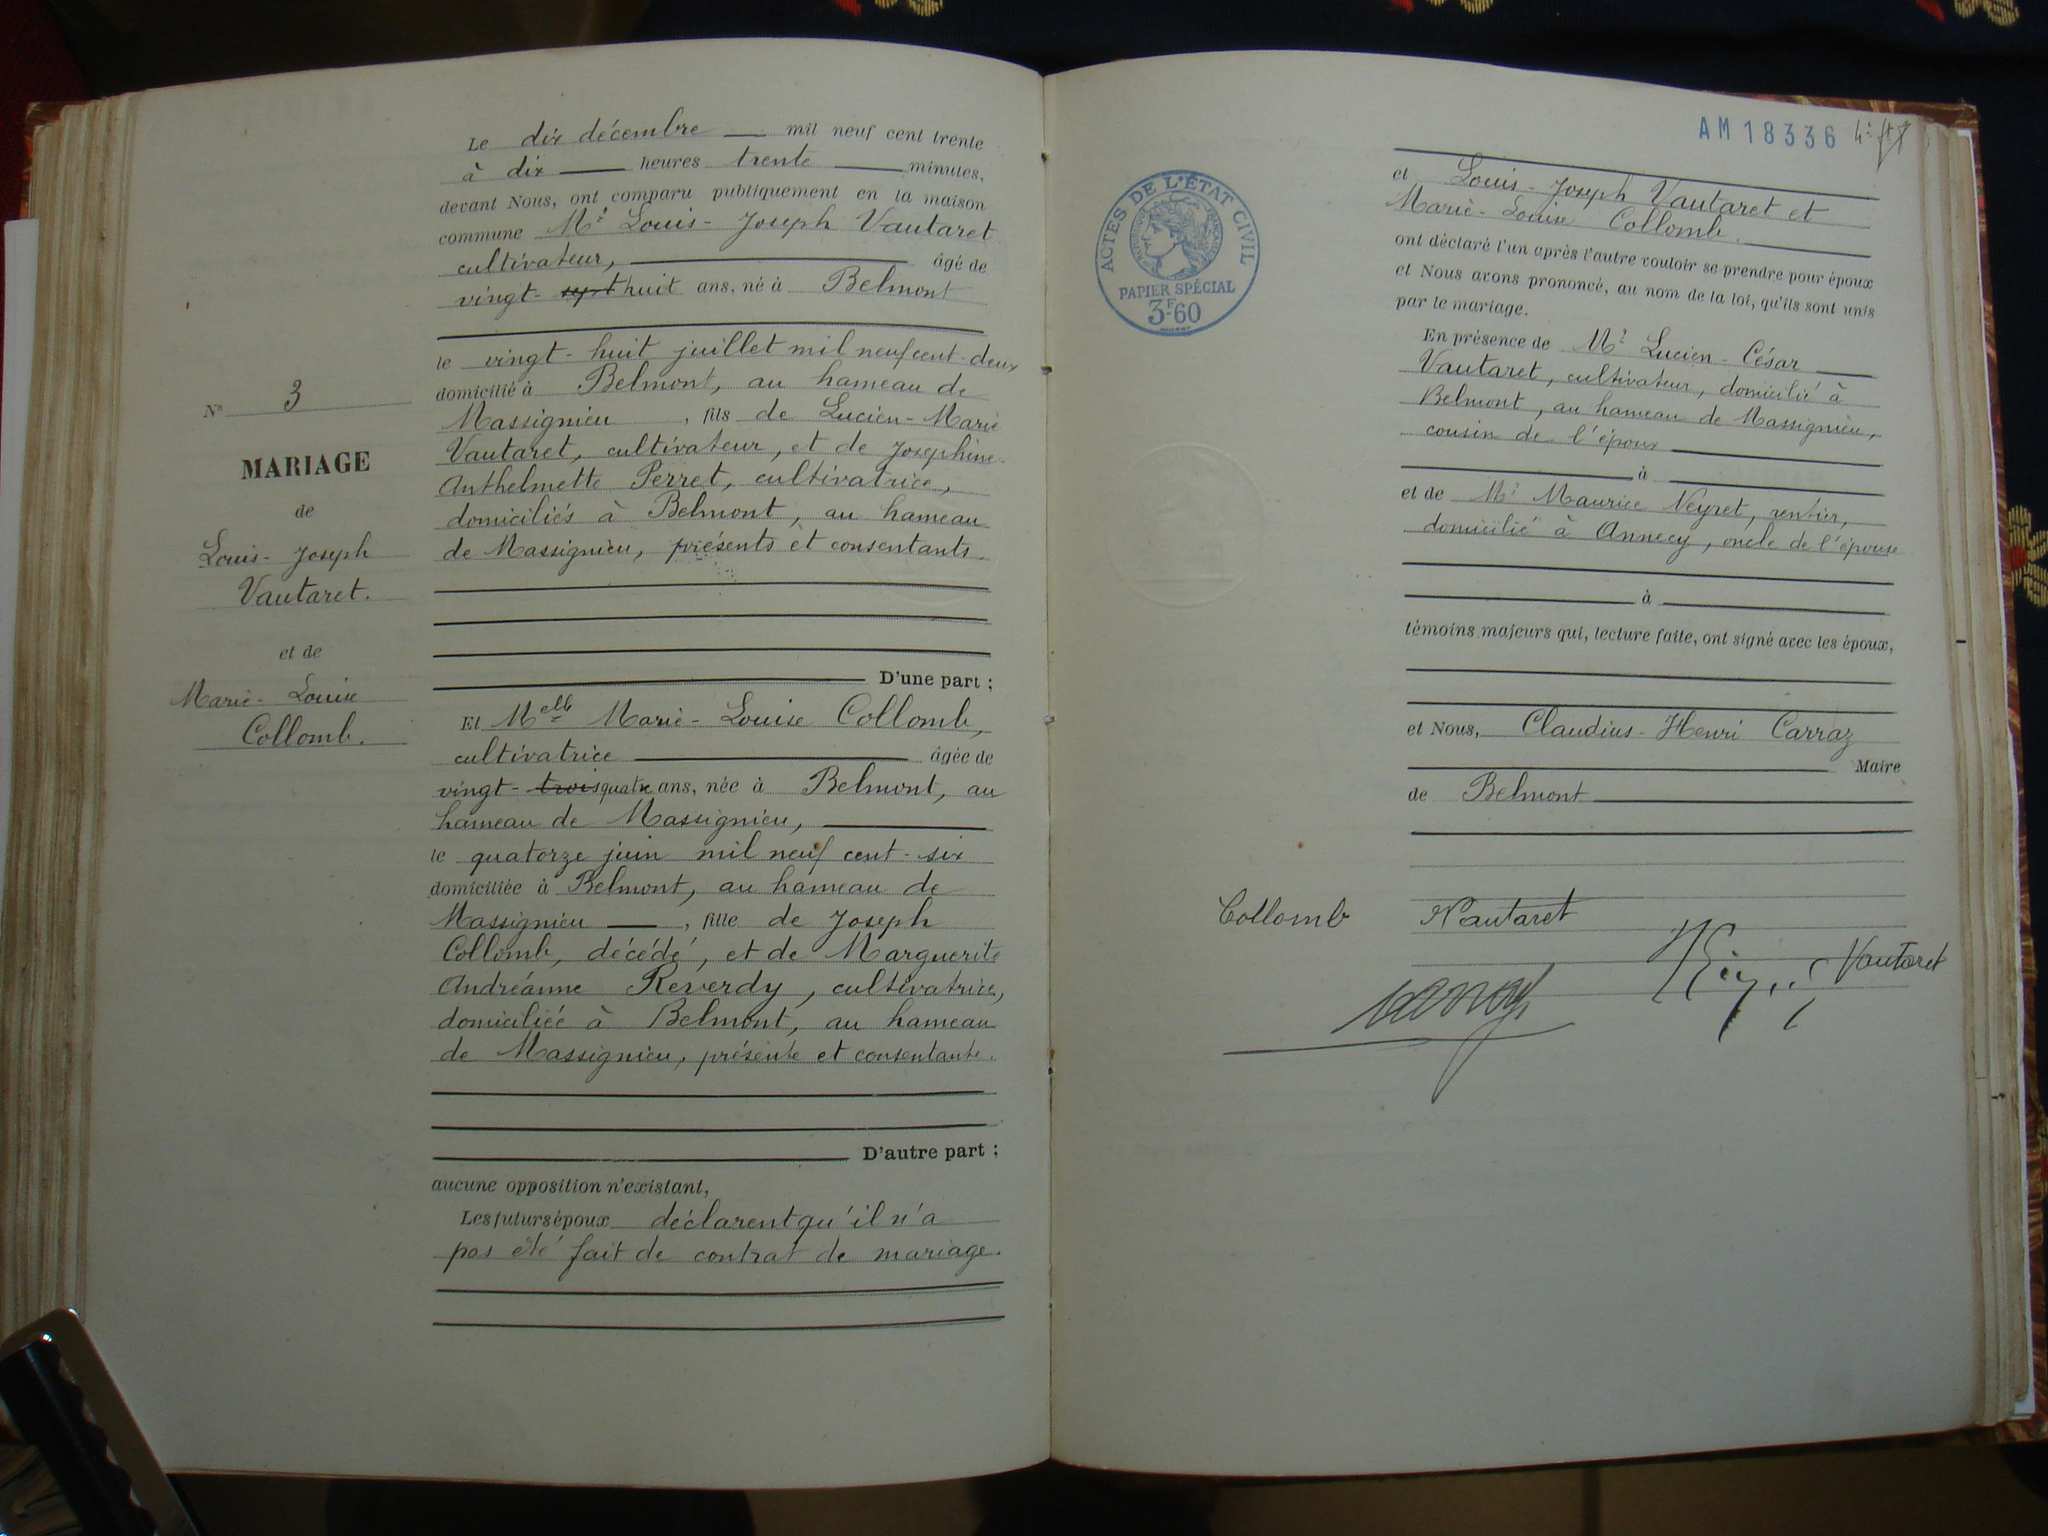 Le dix décembre mil neuf cent trente
à dix heures trente minutes,
devant Nous, ont comparu publiquement en la maison
commune Mr Louis-Joseph Vautaret
cultivateur, âgé de
vingt-sept huit ans, né à Belmont
le vingt-huit juillet mil neuf cent-deux
domicilié à Belmont, au hameau de
Massignieu, fils de Lucien-Marie
Vautaret, cultivateur, et de Joséphine-
Anthelmette Perret, cultivatrice,
domiciliés à Belmont, au hameau
de Massignieu, présents et consentants
D'une part ;
Et Melle Marie-Louise Collomb,
cultivatrice âgée de
vingt-trois quatre ans, née à Belmont, au
hameau de Massignieu,
le quatorze juin mil neuf cent-six
domiciliée à Belmont, au hameau de
Massignieu, fille de Joseph
Collomb, décédé, et de Marguerite
Andréanne Reverdy, cultivatrice,
domiciliée à Belmont, au hameau
de Massignieu, présente et consentante.
D'autre part ;
aucune opposition n'existant,
Les futurs époux déclarent qu'il n'a
pas été fait de contrat de mariage.
No 3
MARIAGE
de
Louis-Joseph
Vautaret.
et de
Marie-Louise
Collomb.
AM 18336
ACTES DE L'ÉTAT CIVIL
PAPIER SPÉCIAL
3F60
et Louis-Joseph Vautaret et
Marie-Louise Collomb.
ont déclaré l'un après l'autre vouloir se prendre pour époux
et Nous avons prononcé, au nom de la loi, qu'ils sont unis
par le mariage.
En présence de Mr Lucien-César
Vautaret, cultivateur, domicilié à
Belmont, au hameau de Massignieu,
cousin de l'époux
à
et de Mr Maurice Neyret, rentier,
domicilié à Annecy, oncle de l'épouse
à
témoins majeurs qui, lecture faite, ont signé avec les époux,
et Nous, Claudius-Henri Carraz
Maire
de Belmont
Collomb Vautaret
Vautaret